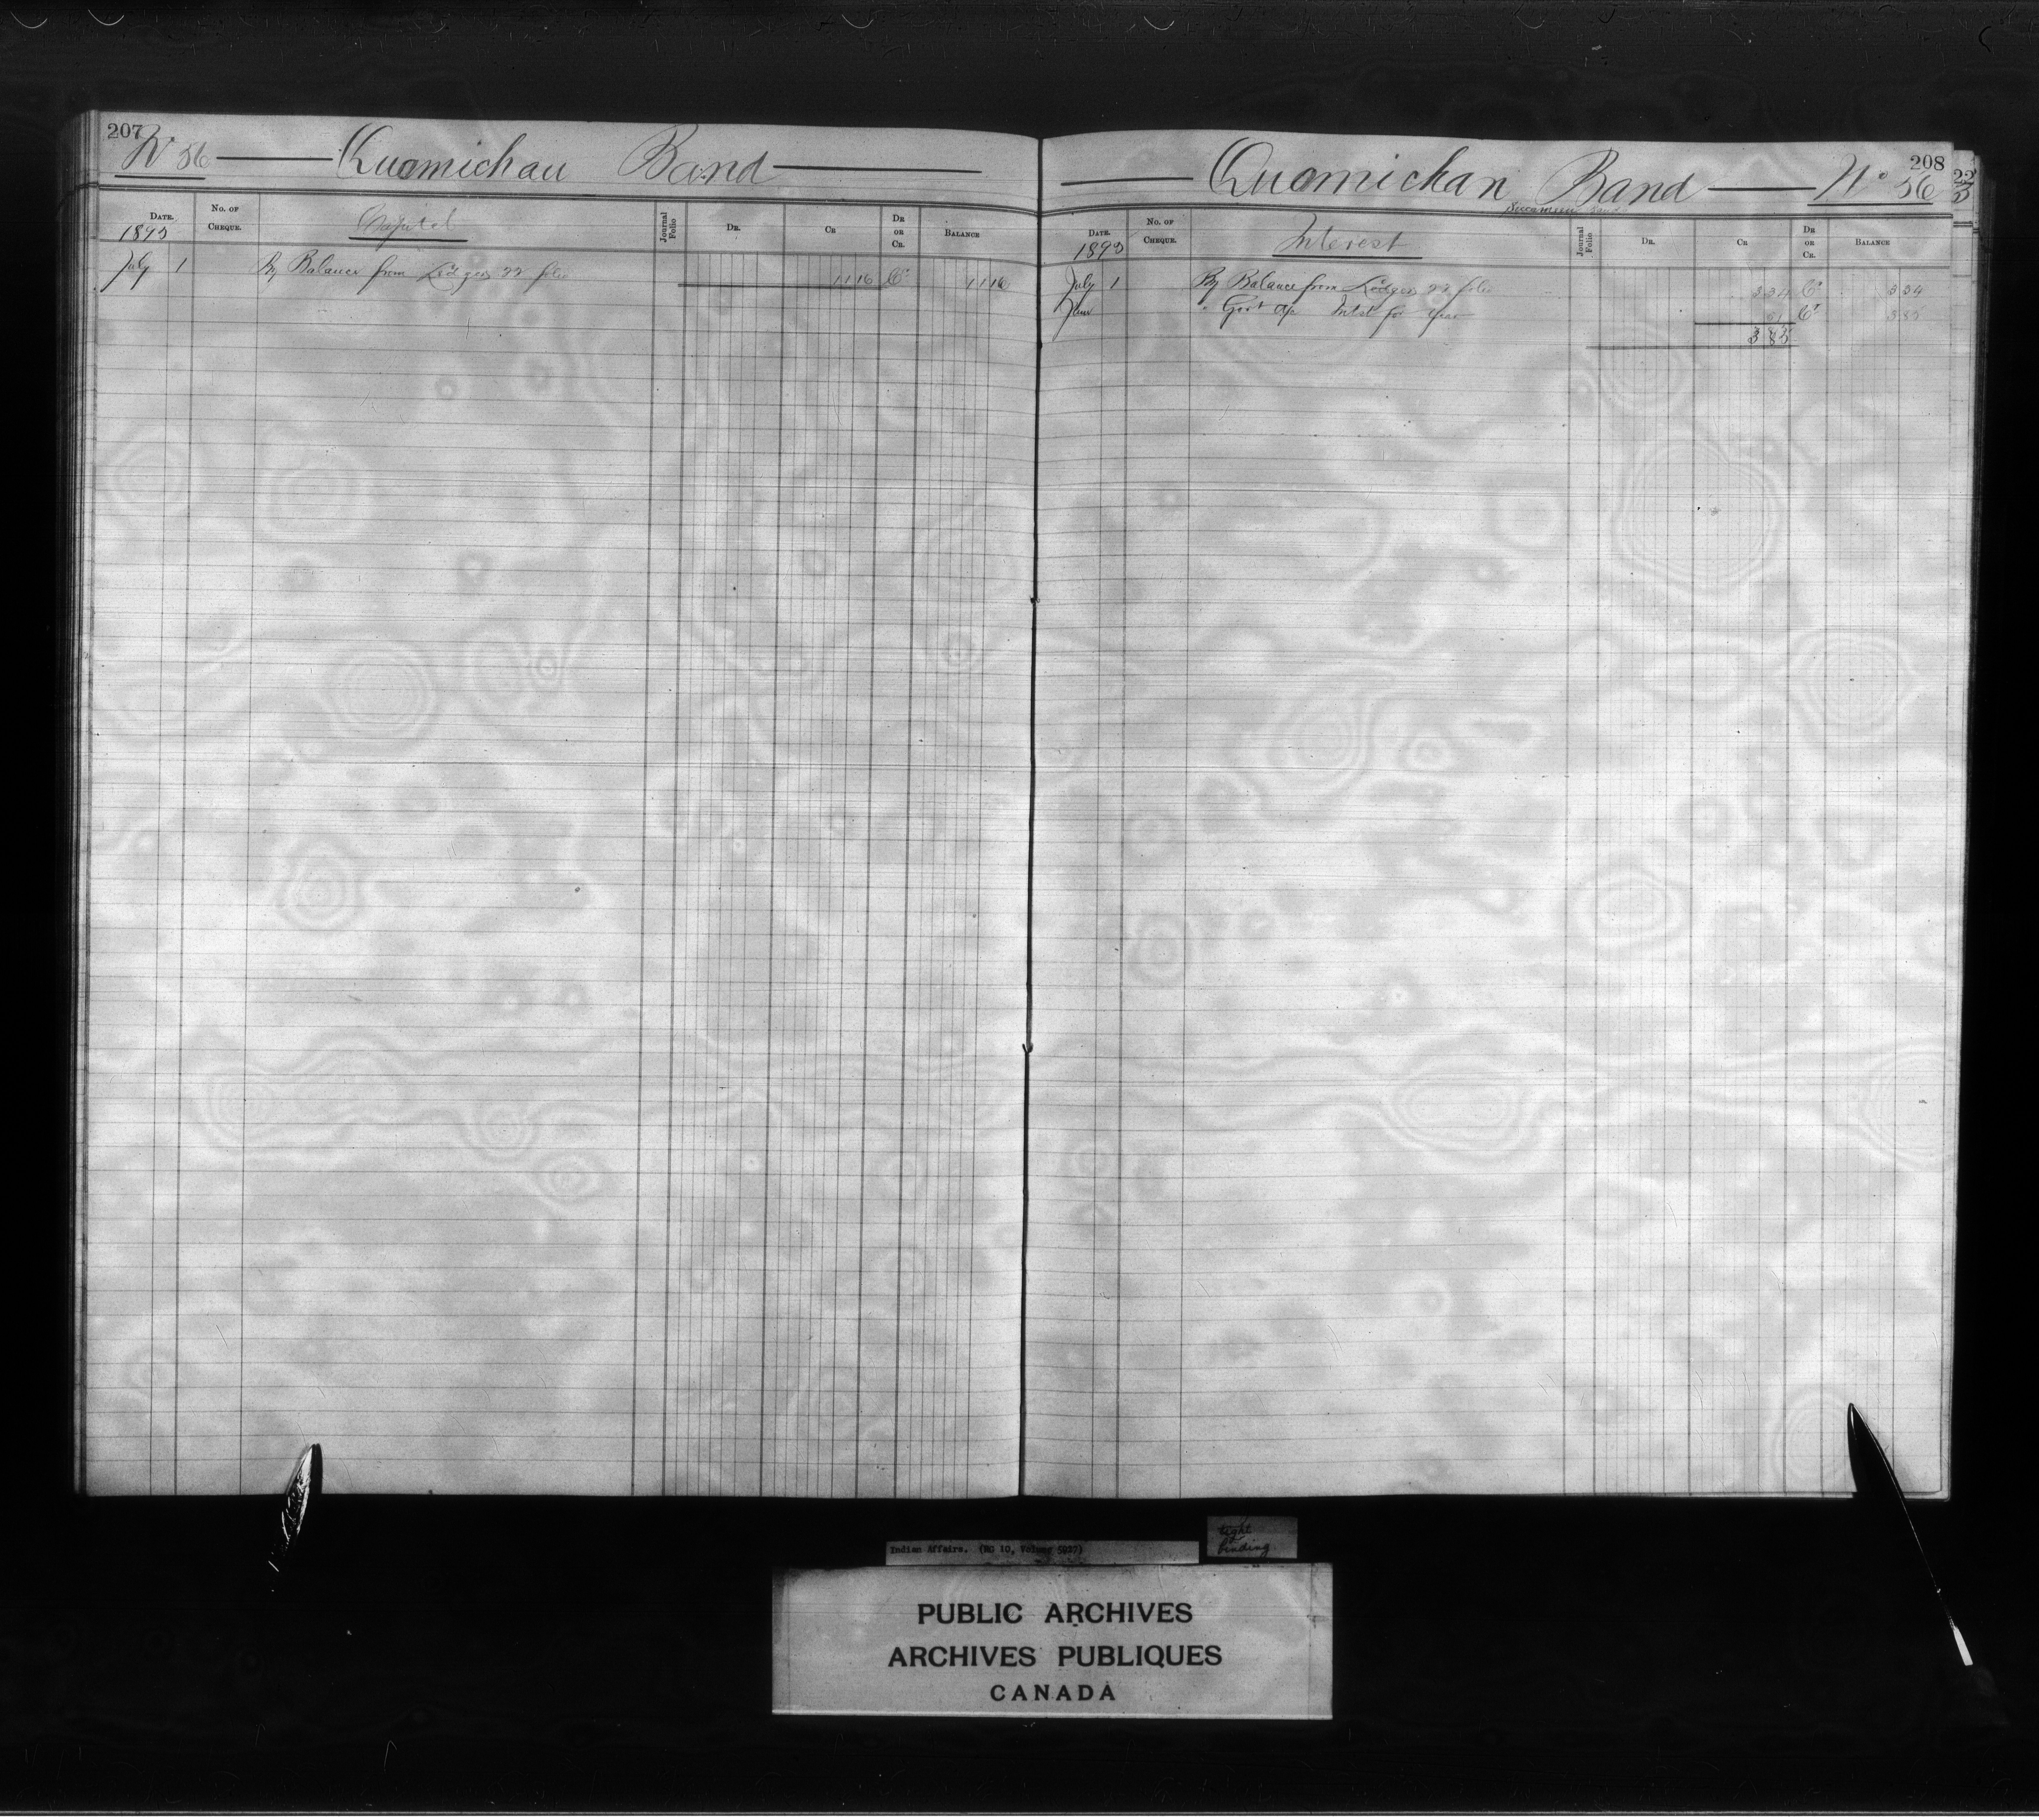 207
No 56 Quamichan Band
DATE. No. OF CHEQUE. Capital Journal Folio DR. CR DR OR CR. BALANCE
1893
July 1 By Balance from Ledger 22 folio 11 16 Cr 11 16
208
Quamichan Band No 56
DATE. No. OF CHEQUE. Interest Journal Folio DR. CR DR OR CR. BALANCE
1893
July 1 By Balance from Ledger 22 folio 3 34 Cr 3 34
June " Govt a/c Intst for year 51 Cr 3 85
3 85
22
3
Indian Affairs. (RG 10, Volume 5927)
tight
binding
PUBLIC ARCHIVES
ARCHIVES PUBLIQUES
CANADA